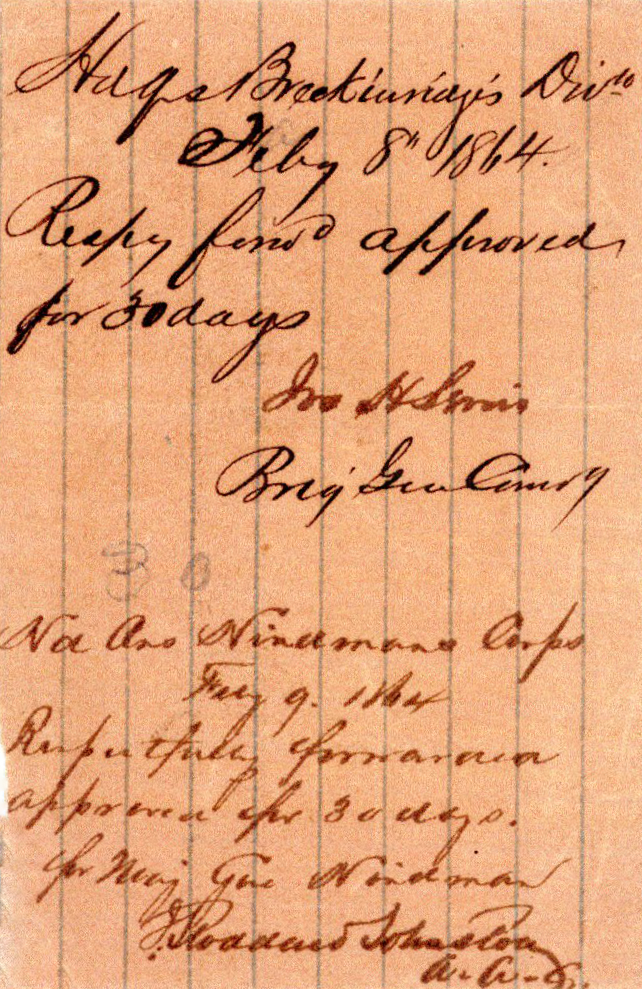 Hdqs Breckinridge's Divn
Feby 8th 1864.
Respy forwd approved
for 30 days
Jno H Lewis
Brig Gen Comdg
30
Hd Qrs Hindmans Corps
Feby 9. 1864
Respectfully forwarded
approved for 30 days.
for Maj Gen Hindman
J. Stoddard Johnston
A. A. G.